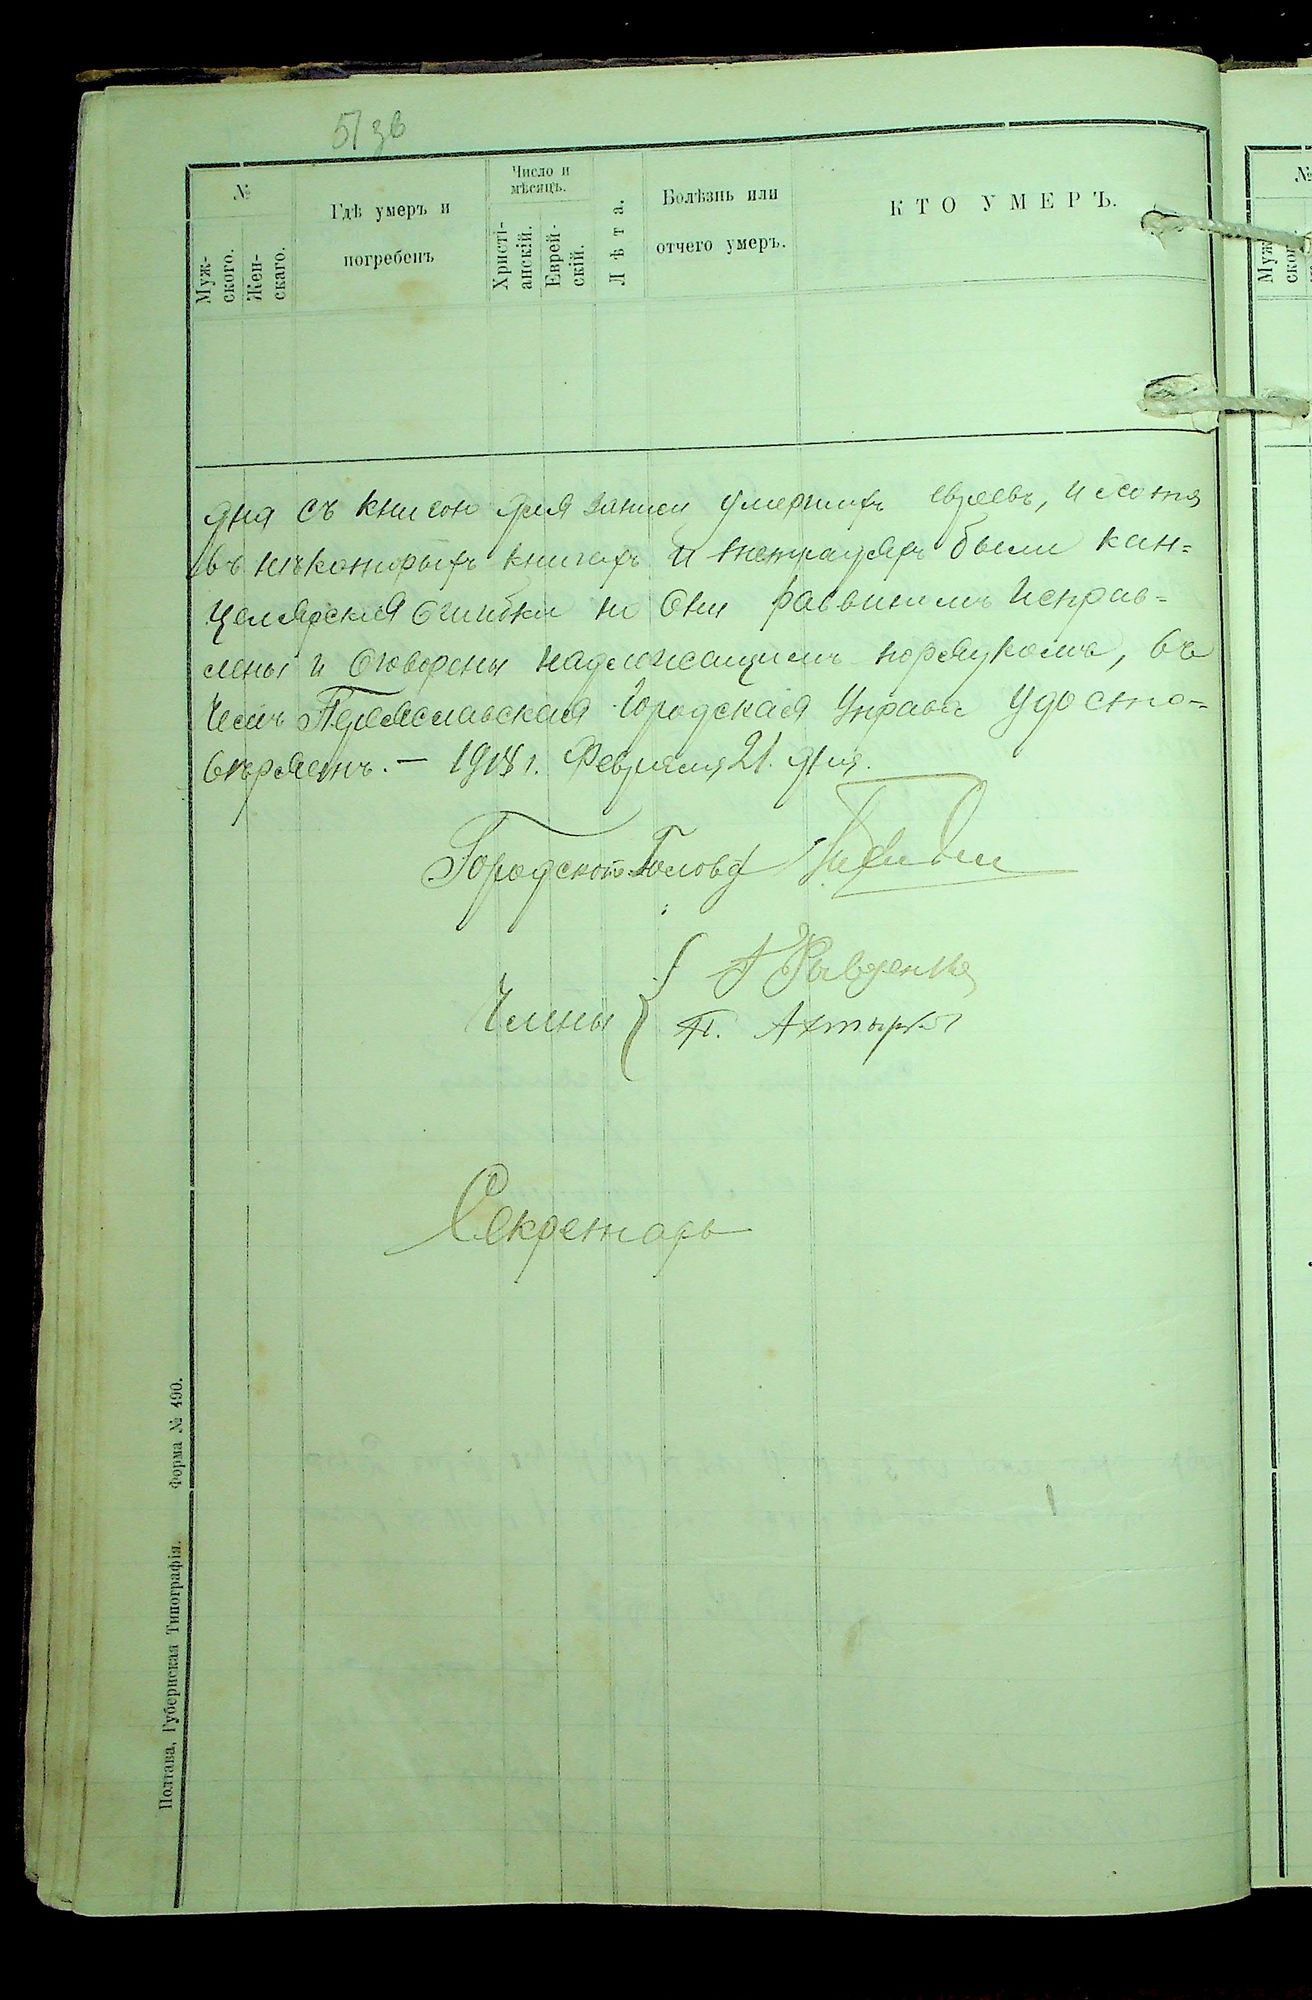 51 зв
№
Муж-
ского.
Жен-
скаго.
Гдѣ умеръ и
погребенъ
Число и
мѣсяцъ.
Христі-
анскій.
Еврей-
скій.
Лѣта.
Болѣзнь или
отчего умеръ.
КТО УМЕРЪ.
дна съ книгою для записи умершихъ евреевъ, и хотя
въ нѣкоторыхъ книгахъ и тетрадяхъ были кан=
целярскія ошибки но они раввиномъ исправ=
лены и оговорены надлежащимъ порядкомъ, въ
чемъ Переяславская Городская Управа удосто-
вѣряетъ. — 1918 г. Февраля 21. дня.
Городской Голова
Члены
П.
Секретарь
Полтава, Губернская Типографія. Форма № 490.
№
Муж
ског